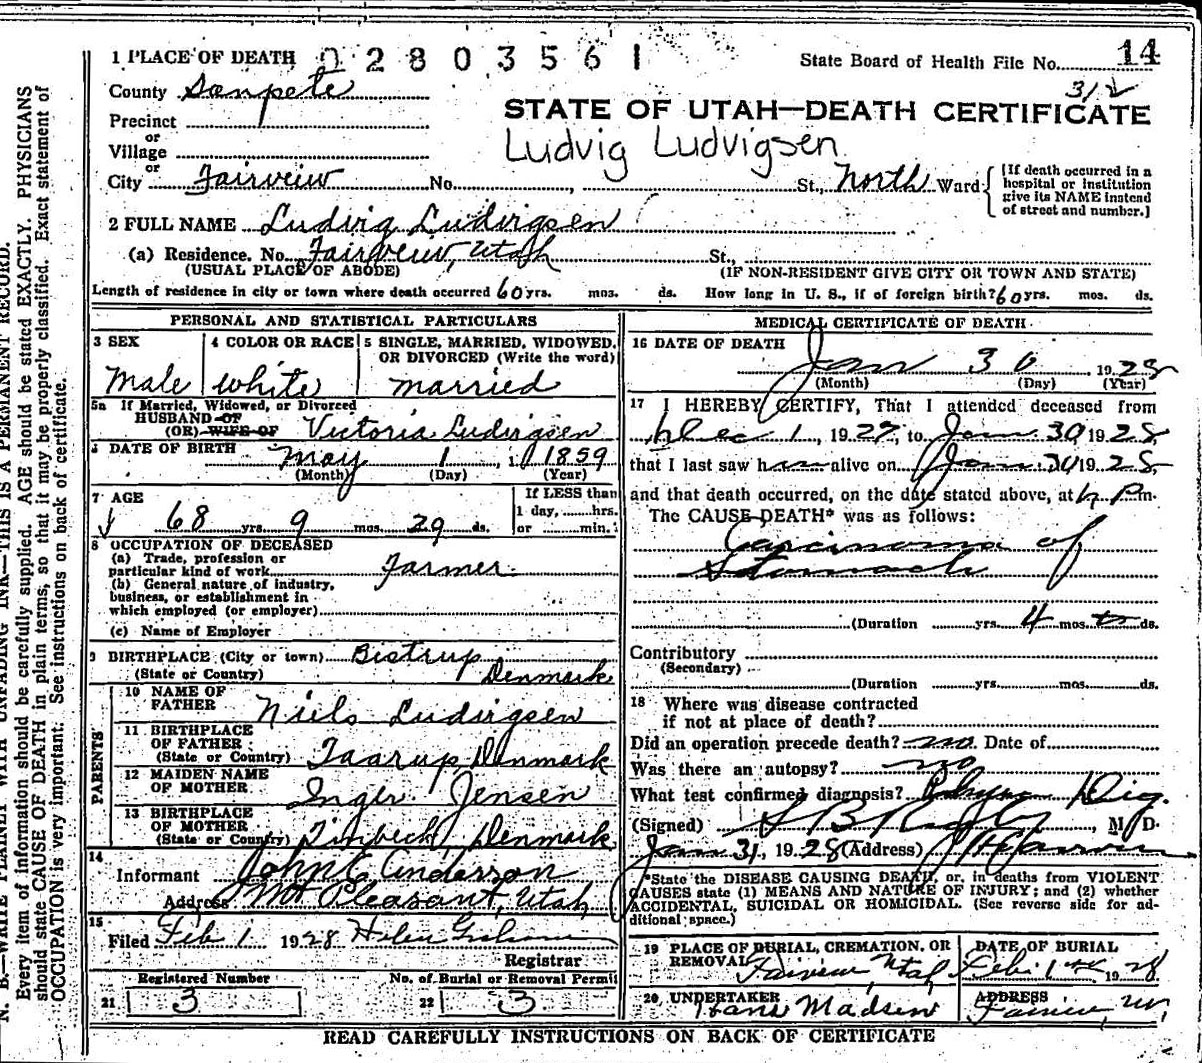 1 PLACE OF DEATH 02803561
State Board of Health File No. 14
312
County Sanpete
STATE OF UTAH—DEATH CERTIFICATE
Precinct
or
Village
Ludvig Ludvigsen
or
City Fairveiw No. St., North Ward
[If death occurred in a
hospital or institution
give its NAME instead
of street and number.]
2 FULL NAME Ludvig Ludvigsen
(a) Residence. No. Fairveiw, Utah St.,
(USUAL PLACE OF ABODE) (IF NON-RESIDENT GIVE CITY OR TOWN AND STATE)
Length of residence in city or town where death occurred 60 yrs. mos. ds. How long in U. S., if of foreign birth? 60 yrs. mos. ds.
PERSONAL AND STATISTICAL PARTICULARS
3 SEX 4 COLOR OR RACE 5 SINGLE, MARRIED, WIDOWED,
OR DIVORCED (Write the word)
Male white married
5a If Married, Widowed, or Divorced
HUSBAND OF
(OR) WIFE OF Victoria Ludvigsen
DATE OF BIRTH May 1, 1859
(Month) (Day) (Year)
7 AGE If LESS than
1 day, hrs.
68 yrs. 9 mos. 29 ds. or min.
8 OCCUPATION OF DECEASED
(a) Trade, profession or
particular kind of work Farmer
(b) General nature of industry,
business, or establishment in
which employed (or employer)
(c) Name of Employer
9 BIRTHPLACE (City or town) Bistrup
(State or Country) Denmark
PARENTS
10 NAME OF
FATHER Niels Ludvigsen
11 BIRTHPLACE
OF FATHER
(State or Country) Taarup Denmark
12 MAIDEN NAME
OF MOTHER Inger Jensen
13 BIRTHPLACE
OF MOTHER
(State or Country) Denmark
14
Informant John E Anderson
Address Mt Pleasant, Utah
15
Filed Feb 1 1928 Helen
Registrar
Registered Number No. of Burial or Removal Permit
21 3 22 3
MEDICAL CERTIFICATE OF DEATH
16 DATE OF DEATH
Jan 30 1928
(Month) (Day) (Year)
17 I HEREBY CERTIFY, That I attended deceased from
Dec 1, 1927, to Jan 30 1928
that I last saw h alive on Jan 30 1928
and that death occurred, on the date stated above, at P m.
The CAUSE DEATH* was as follows:
Carcinoma of
Stomach
(Duration yrs. 4 mos. ds.
Contributory
(Secondary)
(Duration yrs. mos. ds.
18 Where was disease contracted
if not at place of death?
Did an operation precede death? no. Date of
Was there an autopsy? no
What test confirmed diagnosis?
(Signed) M D.
Jan 31, 1928 (Address)
*State the DISEASE CAUSING DEATH, or, in deaths from VIOLENT
CAUSES state (1) MEANS AND NATURE OF INJURY; and (2) whether
ACCIDENTAL, SUICIDAL OR HOMICIDAL. (See reverse side for ad-
ditional space.)
19 PLACE OF BURIAL, CREMATION, OR
REMOVAL Fairview Utah
DATE OF BURIAL
Feb. 1 1928
20 UNDERTAKER Hans Madsen
ADDRESS
READ CAREFULLY INSTRUCTIONS ON BACK OF CERTIFICATE
N. B.—WRITE PLAINLY WITH UNFADING INK—THIS IS A PERMANENT RECORD.
Every item of information should be carefully supplied. AGE should be stated EXACTLY. PHYSICIANS
should state CAUSE OF DEATH in plain terms, so that it may be properly classified. Exact statement of
OCCUPATION is very important. See instructions on back of certificate.